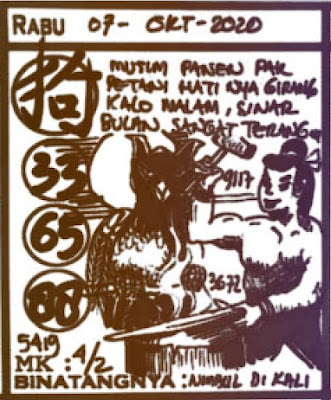 RABU 07- OKT-2020
MUSIM PANEN PAK
PETANI HATI NYA GIRANG
KALO MALAM, SINAR
BULAN SANGAT TERANG
狗
33
9117
65
3672
00
5419
MK : 4/2
BINATANGNYA : DI KALI